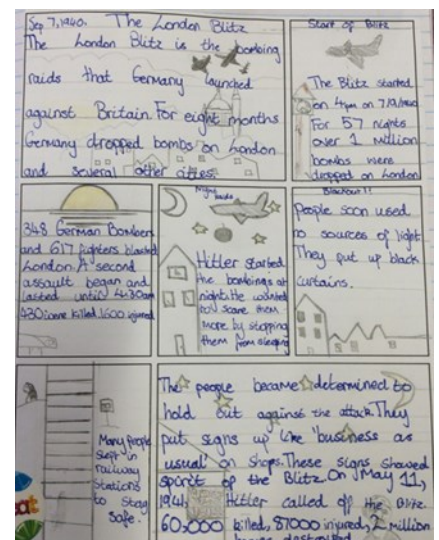 Sep 7, 1940. The London Blitz
The London Blitz is the bombing
raids that Germany launched
against Britain. For eight months
Germany dropped bombs on London
and several other cities.
Start of Blitz
The Blitz started
on 4pm on 7/9/1940
For 57 nights
over 1 Million
bombs were
dropped on London
348 German Bombers
and 617 fighters blasted
London. A second
assault began and
lasted until 4:30am
430 were killed, 1600 injured
Night Raids
Hitler started
the bombings at
night. He wanted
to scare them
more by stopping
them from sleeping
Blackout!!
People soon used
no sources of light
They put up black
curtains.
Many people
slept in
railway
stations
to stay
Safe.
The people became determined to
hold out against the attack. They
put signs up like 'business as
usual' on shops. These signs showed
spirit of the Blitz. On May 11,
1941, Hitler called off the Blitz.
60,000 killed, 87000 injured, 2 million